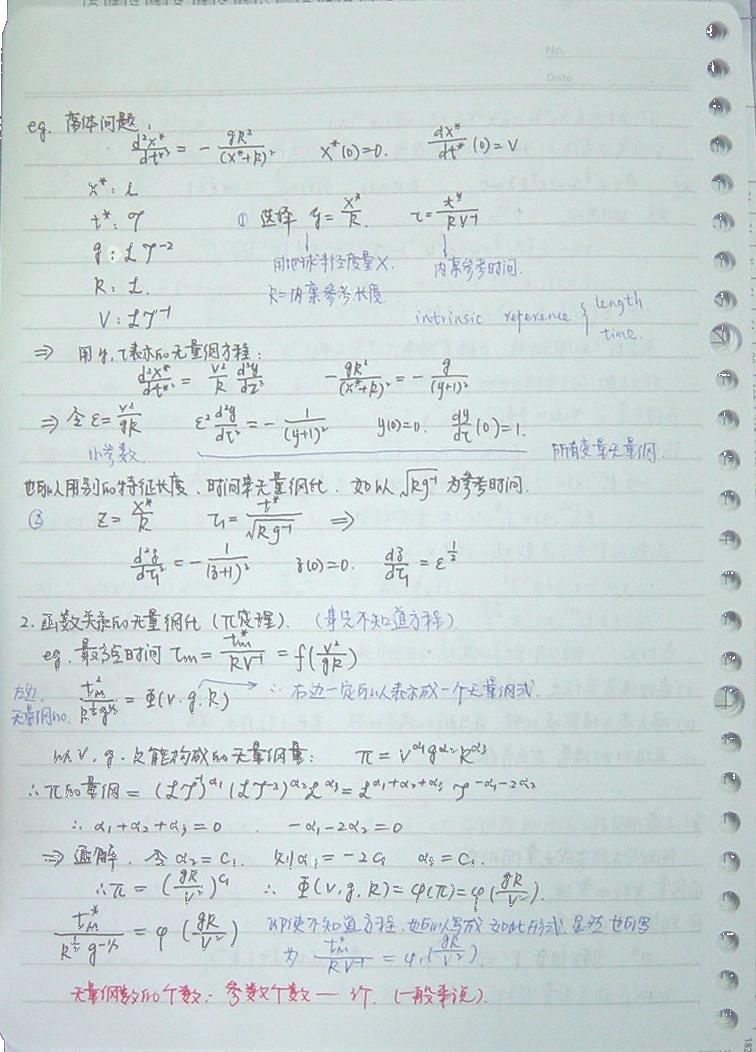 No.
Date
eg. 落体问题:
d²x*/dt*² = - gR²/(x*+R)²   x*(0)=0.   dx*/dt*(0)=V
x*: L
t*: T   ① 选择 y = x*/R   τ = t*/RV⁻¹
g: LT⁻²   用地球半径度量X.   内禀参考时间.
R: L.   R=内禀参考长度
V: LT⁻¹   intrinsic reference { length time.
⇒ 用y,τ表示的无量纲方程:
d²x*/dt*² = V²/R d²y/dτ²   -gR²/(x*+R)² = - g/(y+1)²
⇒ 令 ε = V²/gR   ε² d²y/dτ² = - 1/(y+1)²   y(0)=0.   dy/dτ(0)=1.
小参数   所有变量无量纲.
也可以用别的特征长度、时间来无量纲化. 如以 √Rg⁻¹ 为参考时间.
② z = x*/R   τ₁ = t*/√Rg⁻¹   ⇒
d²z/dτ₁² = - 1/(z+1)²   z(0)=0.   dz/dτ₁ = ε^½
2. 函数关系的无量纲化 (π定理). (事先不知道方程)
eg. 最高点时间 τm = tm*/RV⁻¹ = f(V²/gR)
左边无量纲的.   tm*/R^½g^-½ = Φ(V.g.R)   ∴ 右边一定可以表示成一个无量纲式.
以V.g.R能构成的无量纲量:   π = V^α₁ g^α₂ R^α₃
∴ π的量纲 = (LT⁻¹)^α₁ (LT⁻²)^α₂ L^α₃ = L^α₁+α₂+α₃ T^-α₁-2α₂
∴ α₁+α₂+α₃=0.   -α₁-2α₂=0
⇒ 通解. 令 α₂=C₁.   则α₁=-2C₁   α₃=C₁.
∴ π = (gR/V²)^C₁   ∴ Φ(V,g,R)=φ(π)=φ(gR/V²).
tm*/R^½ g^-½ = φ(gR/V²)   即使不知道方程, 也可以写成如此形式. 显然也可写
为 tm*/RV⁻¹ = φ₁(gR/V²).
无量纲数的个数: 参数个数 — 3个. (一般来说).